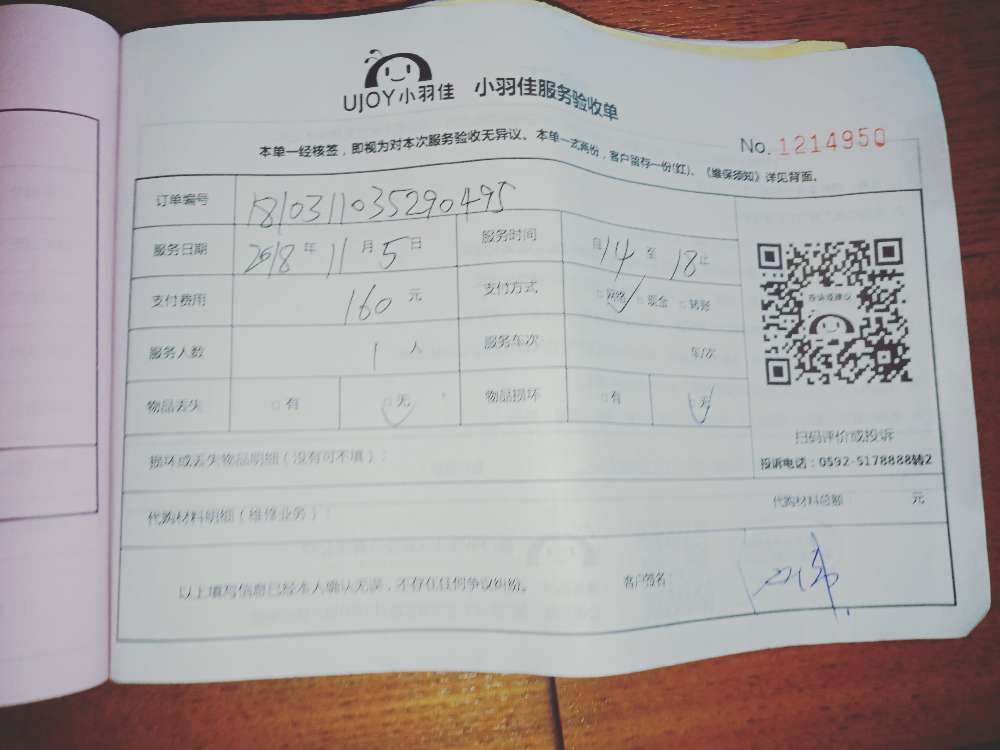 UJOY小羽佳 小羽佳服务验收单
本单一经核签，即视为对本次服务验收无异议。本单一式两份，客户留存一份(红)。《维保须知》详见背面。
No. 1214950
订单编号 1810311035290495
服务日期 2018年 11月 5日 服务时间 自 14 至 18 止
支付费用 160 元 支付方式 □网络 □现金 □转账
服务人数 1 人 服务车次 车/次
物品丢失 □有 □无 物品损坏 □有 □无
扫码评价或投诉
投诉电话：0592-5178888转2
损坏或丢失物品明细（没有可不填）：
代购材料明细（维修业务）： 代购材料总额 元
以上填写信息已经本人确认无误，不存在任何争议纠纷。 客户签名